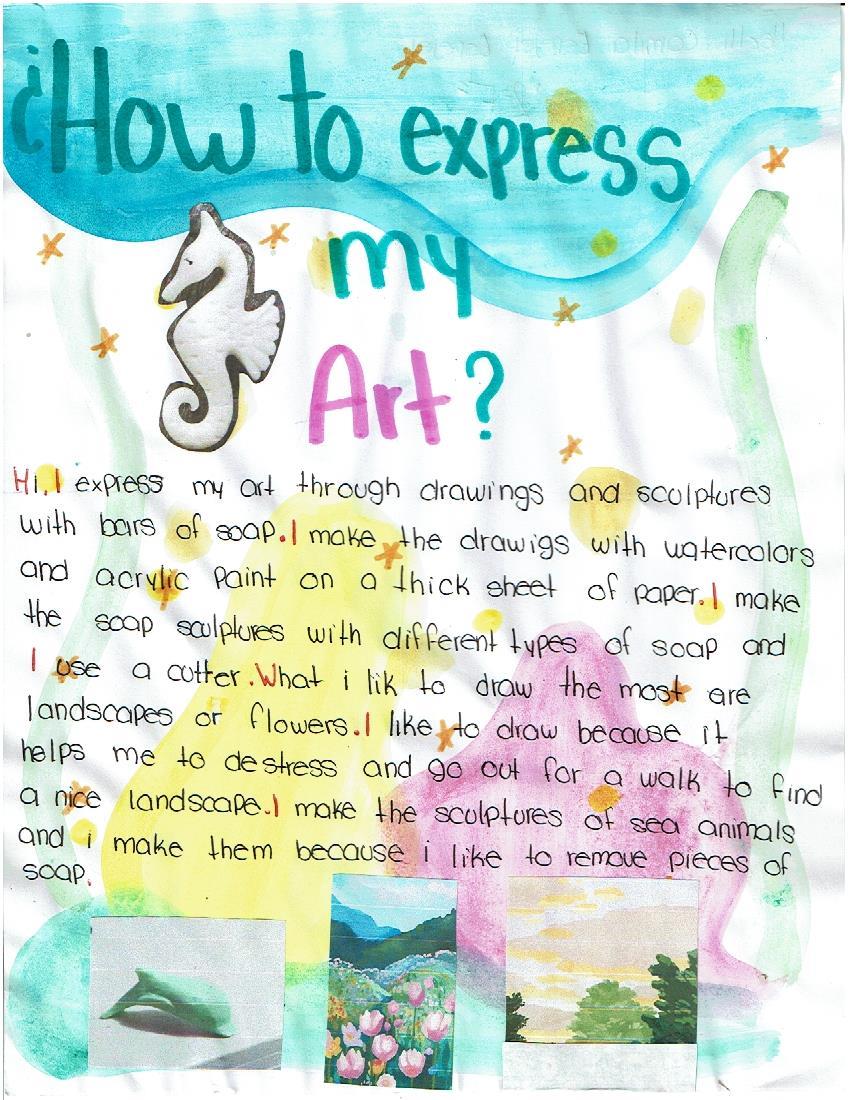 ¿How to express
my
Art?
Hi, I express my art through drawings and sculptures
with bars of soap. I make the drawigs with watercolors
and acrylic paint on a thick sheet of paper. I make
the soap sculptures with different types of soap and
I use a cutter. What i lik to draw the most are
landscapes or flowers. I like to draw because it
helps me to destress and go out for a walk to find
a nice landscape. I make the sculptures of sea animals
and i make them because i like to remove pieces of
soap.